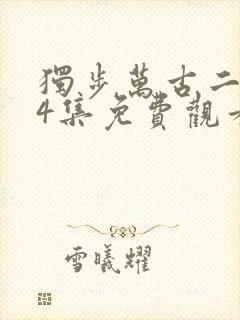 獨步萬古二
4集免費觀看
雪曦耀